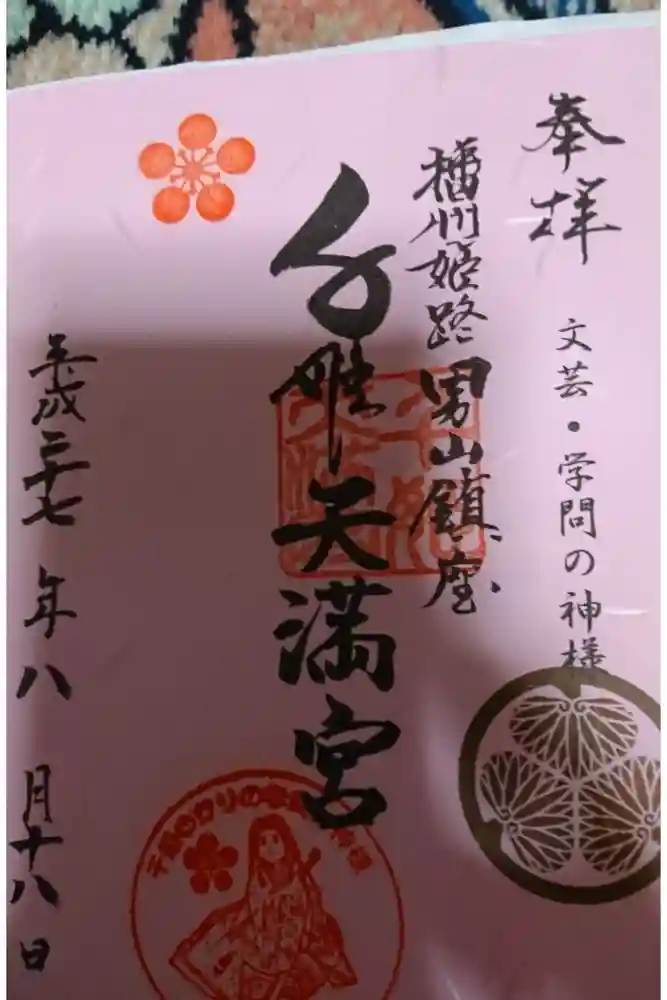 奉拝
文芸・学問の神様
播州姫路 男山鎮座
千姫天満宮
平成二十七年八月十八日